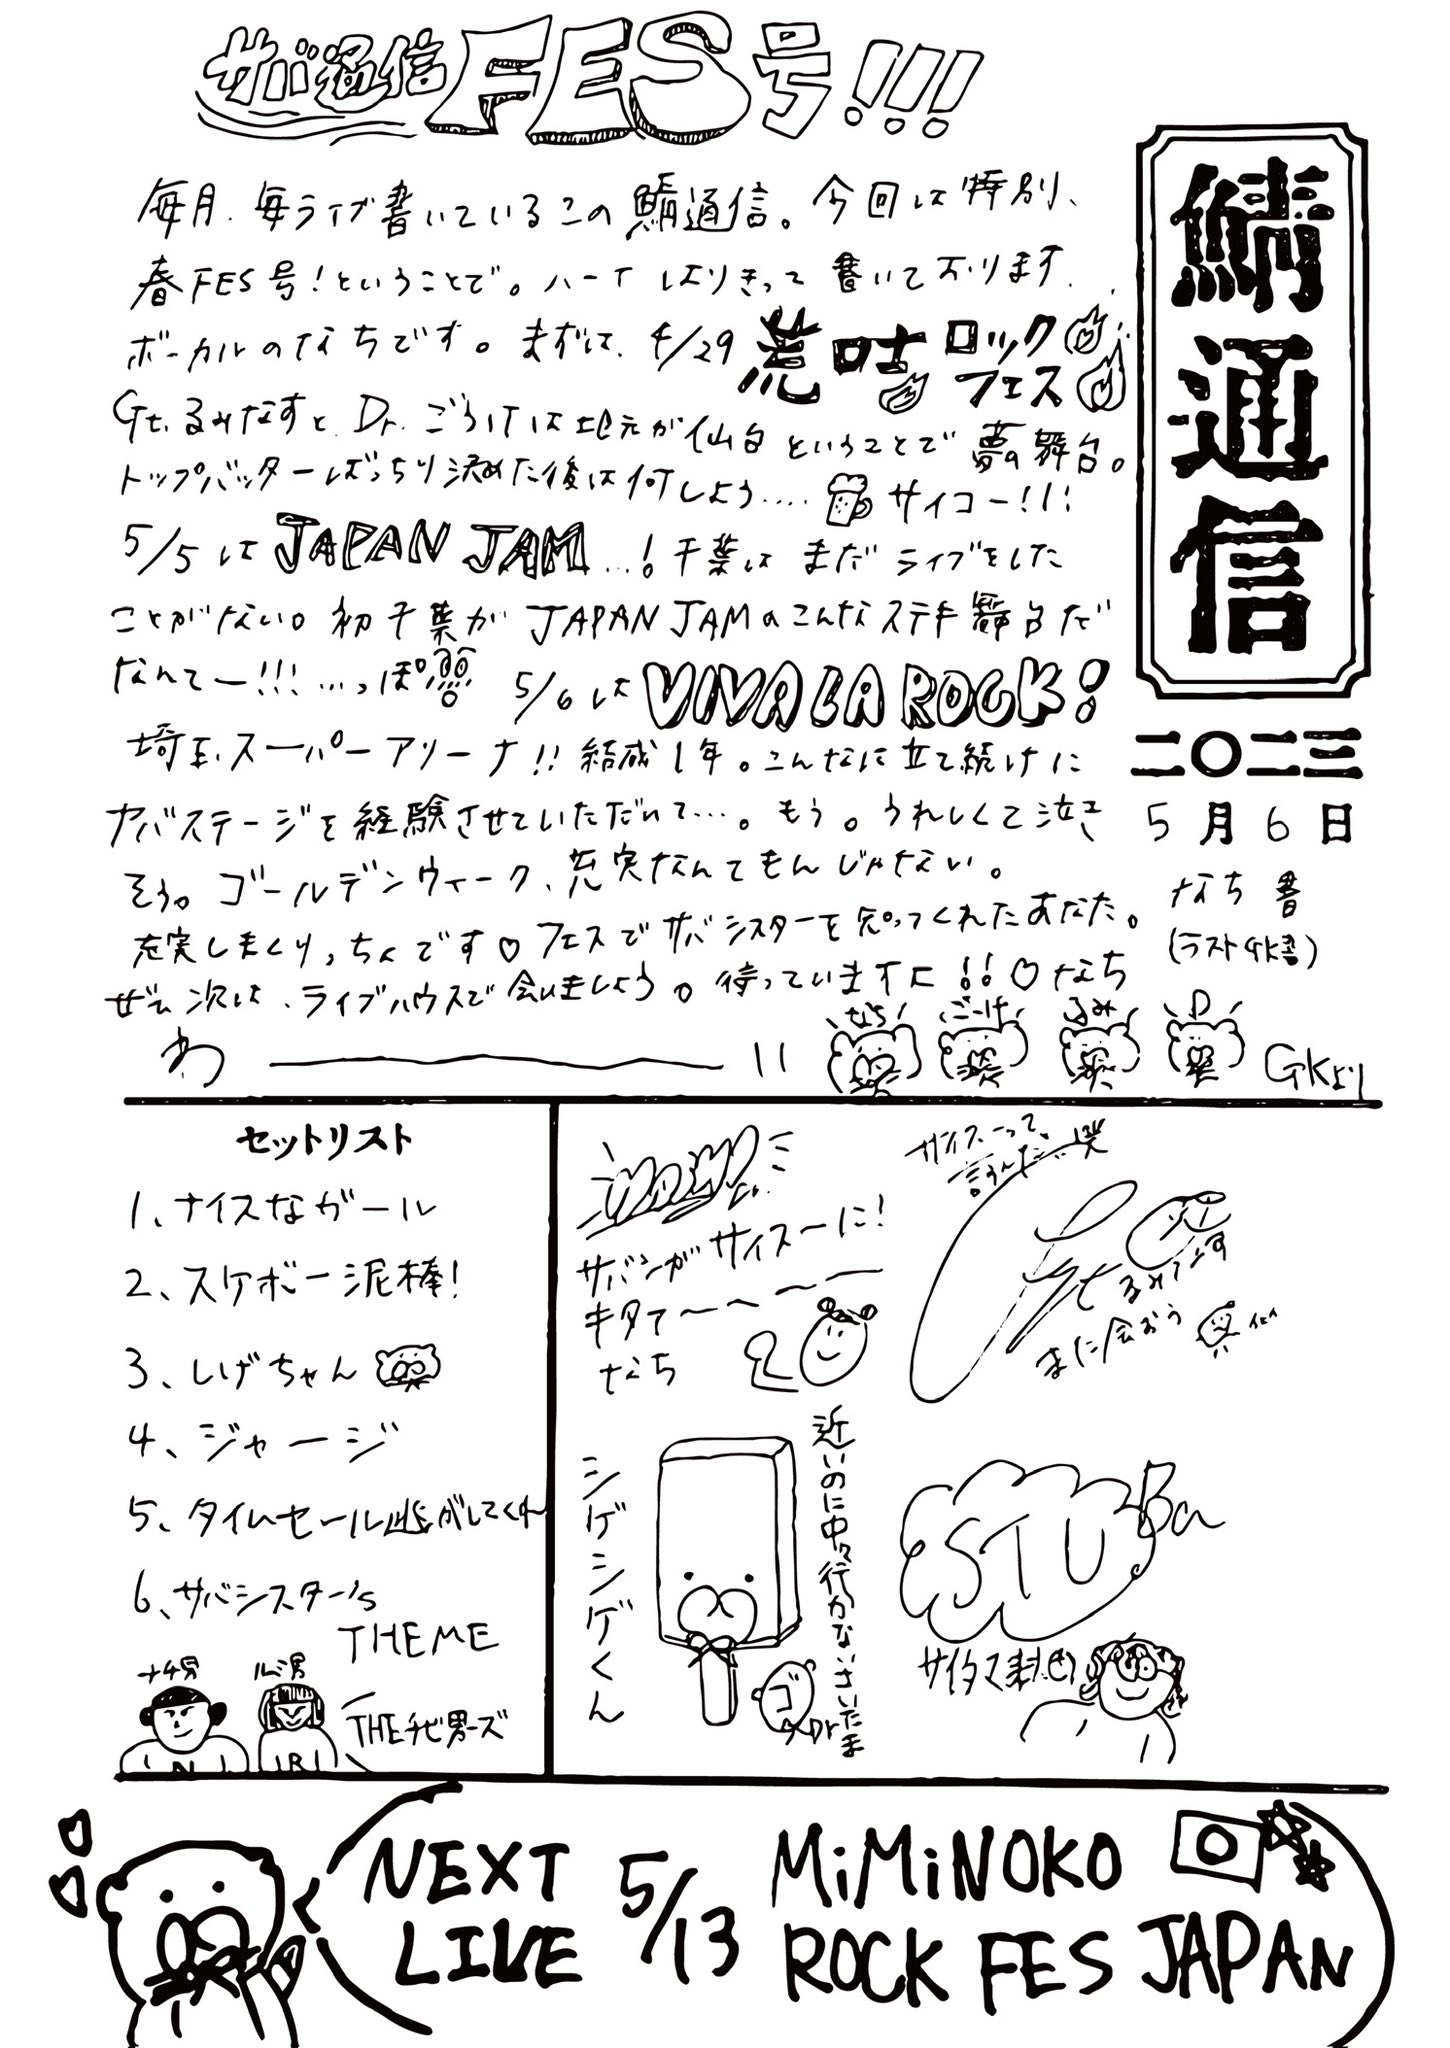 サバ通信FES号!!!
鯖通信
二〇二三
5月6日
なち書
(ラストGK書)
毎月、毎ライブ書いているこの鯖通信。今回は特別、
春FES号!ということで。ハート はりきって書いております。
ボーカルのなちです。まずは、4/29 荒吐ロックフェス
Gt.るみなすと、Dr.ごうけは地元が仙台ということで夢の舞台。
トップバッターばっちり決めた後は何しよう.... サイコー!!!
5/5は JAPAN JAM...!千葉はまだライブをした
ことがない。初千葉がJAPAN JAMのこんなステキ舞台だ
なんてー!!!...っぽ 5/6は VIVA LA ROCK!
埼玉スーパーアリーナ!!結成1年。こんなに立て続けに
ヤバステージを経験させていただいて...。もう。うれしくて泣き
そう。ゴールデンウィーク、充実なんてもんじゃない。
充実しまくりっちんです♡フェスでサバシスターを知ってくれたあなた。
ぜひ次は、ライブハウスで会いましょう。待っていますに!!♡なち
わ———!!
なち ごーけ るみ
GKより
セットリスト
1、ナイスなガール
2、スケボー泥棒!
3、しげちゃん
4、ジャージ
5、タイムセール逃がしてくれ
6、サバシスター's
THEME
ナチ男 ルミ男
THEチビ男ーズ
N R
サバンがサイスーに!
キタてー〜〜〜ー
なち
サイスーって、
言うんだ...笑
Gt るみなす
また会おう
シゲシゲくん
近いのに中々行かないさいたま
ゴ Dr
STU Ba
サイタマ
NEXT LIVE 5/13 MiMiNOKO
ROCK FES JAPAN